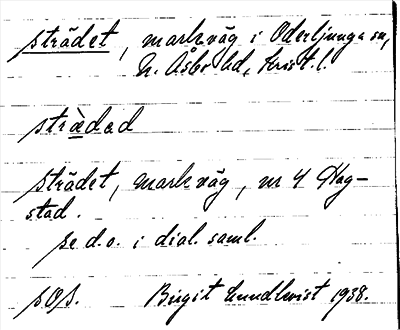 strädet, markväg i Oderljunga sn,
N. Åsbo hd, Krist. l.
strädad
strädet, markväg, nr 4 Hag-
stad.
se d.o. i dial. saml.
Birgit Lundkvist 1938.